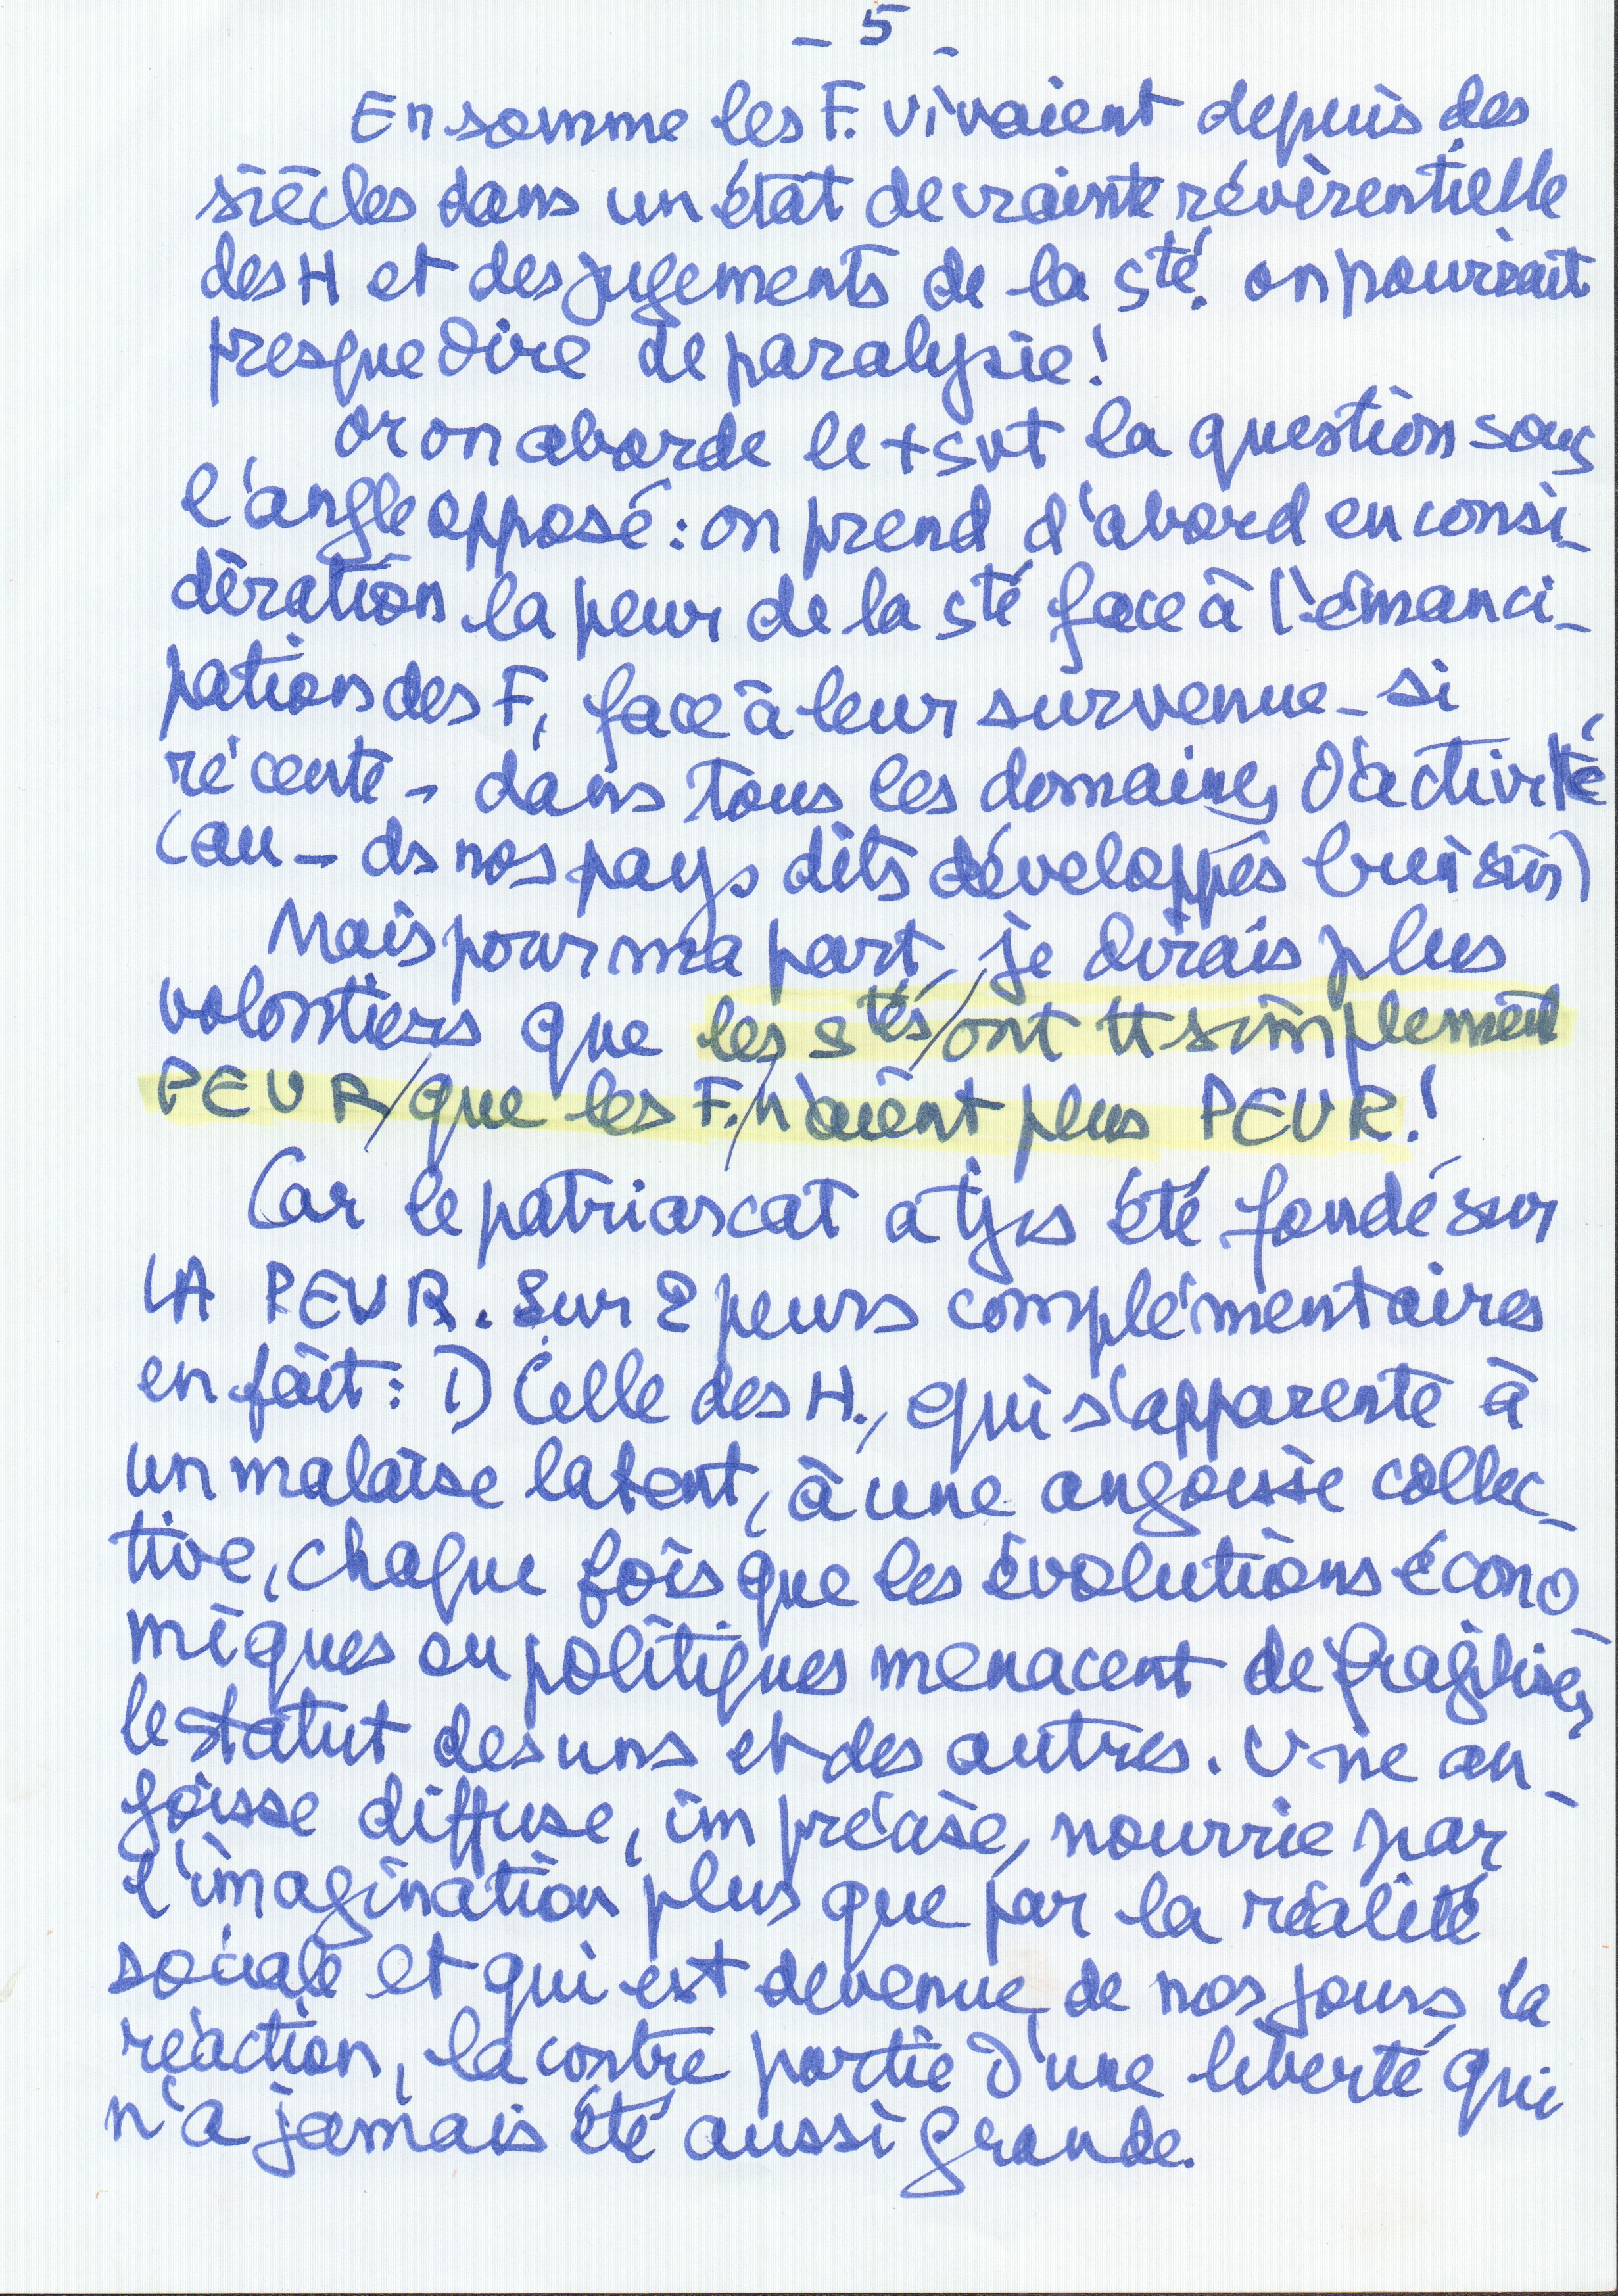 - 5 -
En somme les F. vivaient depuis des
siècles dans un état de crainte révérentielle
des H et des jugements de la Sté. on pourrait
presque dire de paralysie !
Or on aborde le + svt la question sous
l'angle opposé : on prend d'abord en consi-
dération la peur de la Sté face à l'émanci-
pation des F, face à leur survenue - si
récente - dans tous les domaines d'activité
(au - ds nos pays dits développés bien sûr)
Mais pour ma part, je dirais plus
volontiers que les Stés/ont tt simplement
PEUR/que les F./n'aient plus PEUR !
Car le patriarcat a tjrs été fondé sur
LA PEUR. Sur 2 peurs complémentaires
en fait : 1) Celle des H., qui s'apparente à
un malaise latent, à une angoisse collec-
tive, chaque fois que les évolutions écono
miques ou politiques menacent de fragiliser
le statut des uns et des autres. Une an-
goisse diffuse, imprécise, nourrie par
l'imagination plus que par la réalité
sociale et qui est devenue, de nos jours, la
réaction, la contre partie d'une liberté qui
n'a jamais été aussi grande.